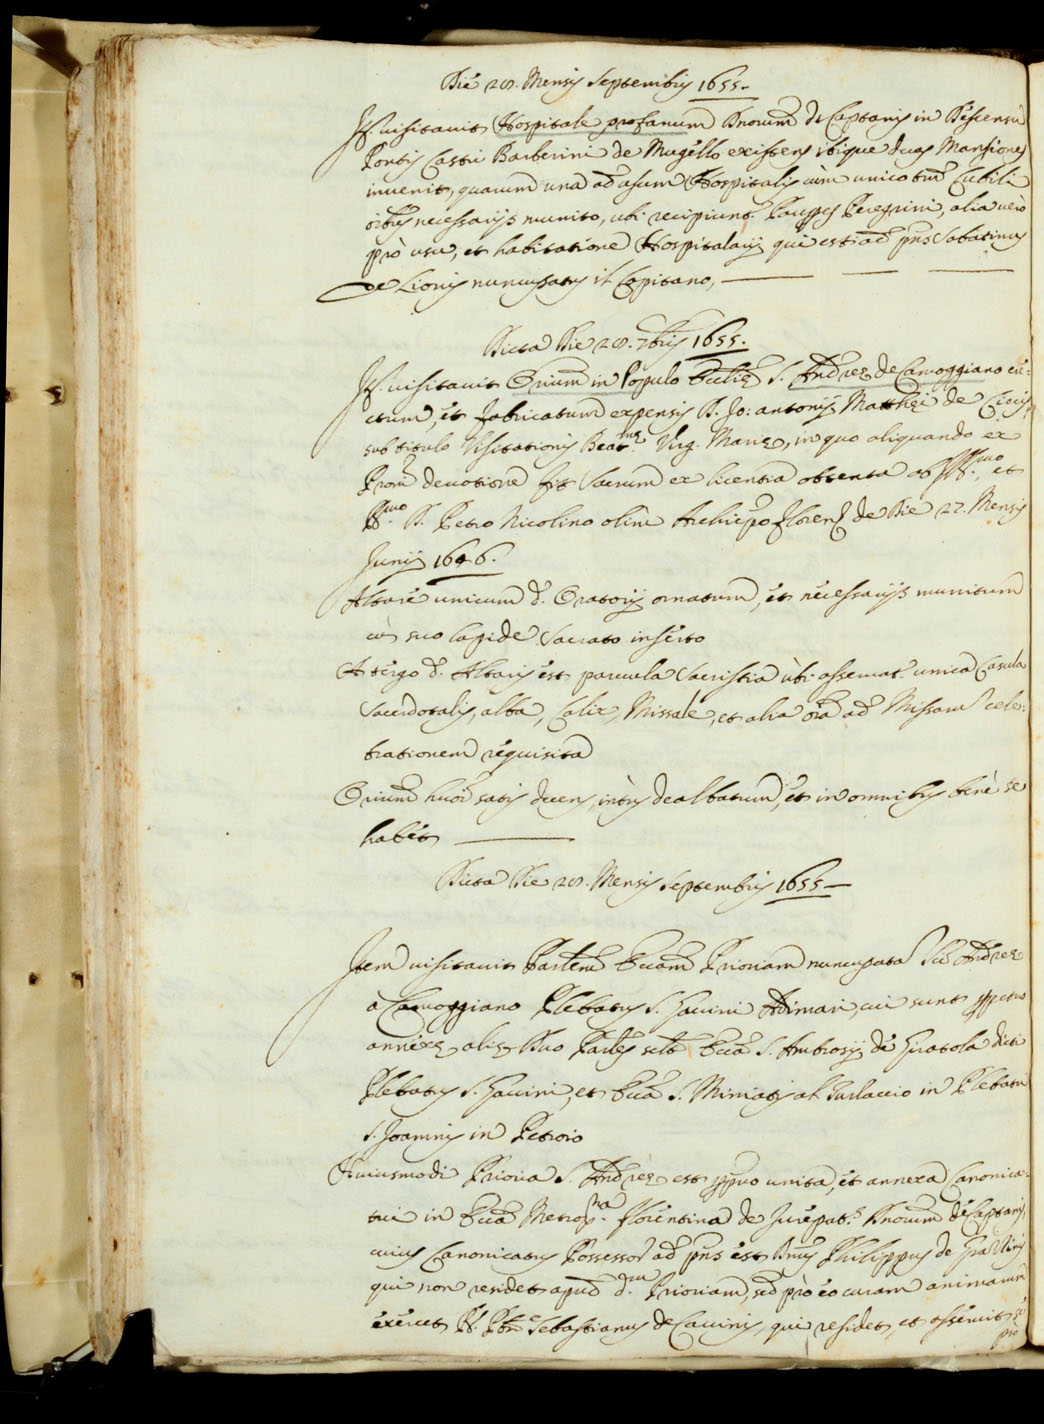 Die 28. Mensis Septembris 1655.
It. visitavit Hospitale profanum Dnorum de Captanis in Discensu
Pontis Castri Barberini de Mugello existens ibique duas Mansiones
invenit, quarum una ad usum Hospitalis cum unico tm̃ Cubili
necessarijs munito, ubi recipiunt. Paupes Peregrini, alia vero
pro usu, et habitatione Hospitalarij qui est ad pñs Sabatinus
de Lionis nuncupatus il Capitano,
Dicta Die 28. 7bris 1655.
It. visitavit Orium in Populo Ecclie S. Andree de Camoggiano ere-
ctum, et fabricatum expensis D. Jo: Antonij Matthei de
sub titulo Visitationis Beatme Virg. Marie, in quo aliquando ex
devotione fit Sacrum ex licentia obtenta ab Illmo, et
Rmo D. Petro Nicolino olim Archiepo Floren de Die 27. Mensis
Junij 1646.
Altare unicum d. Oratorij ornatum, et necessarijs munitum
cũ suo lapide Sacrato inserto
A tergo d. Altaris est parvula Sacristia ubi asservat. unica Casula
Sacerdotalis, alba, Calix, Missale, et alia oia ad Missarum cele-
brationem requisita
Orium huoi satis decens, intus dealbatum, et in omnibus bene se
habet
Dicta Die 28. Mensis Septembris 1655
Item visitavit Parlem Eccam Prioriam nuncupata Sci Andree
a Camoggiano Plebatus S. Gavini Adimari, cui sunt ppetuo
annexe alie Duo Parles scilt Ecca S. Ambrosij de Giratola dicti
Plebatus S. Gavini, et Ecca S. Miniatis al in Plebatu
S. Joannis in Petroio
Huiusmodi Prioria S. Andree est ppuo unita, et annexa Canonica-
tui in Ecca Metropna Florentina de Jurepats Dnorum de Captanis,
cuius Canonicatus Possessor ad pñs est Dnus Philippus de
qui non residet apud dm Prioriam, sed pro eo curam animarum
exercet R. Pbr Sebastianus de Cavinis, qui residet, et asseruit se
pro